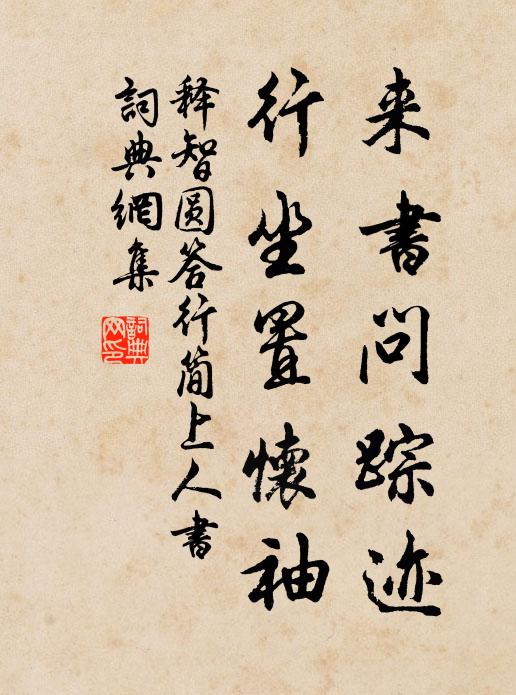 来書问踪迹
行坐置懷袖
释智圆答行简上人書
詞典網集
詞典
网印